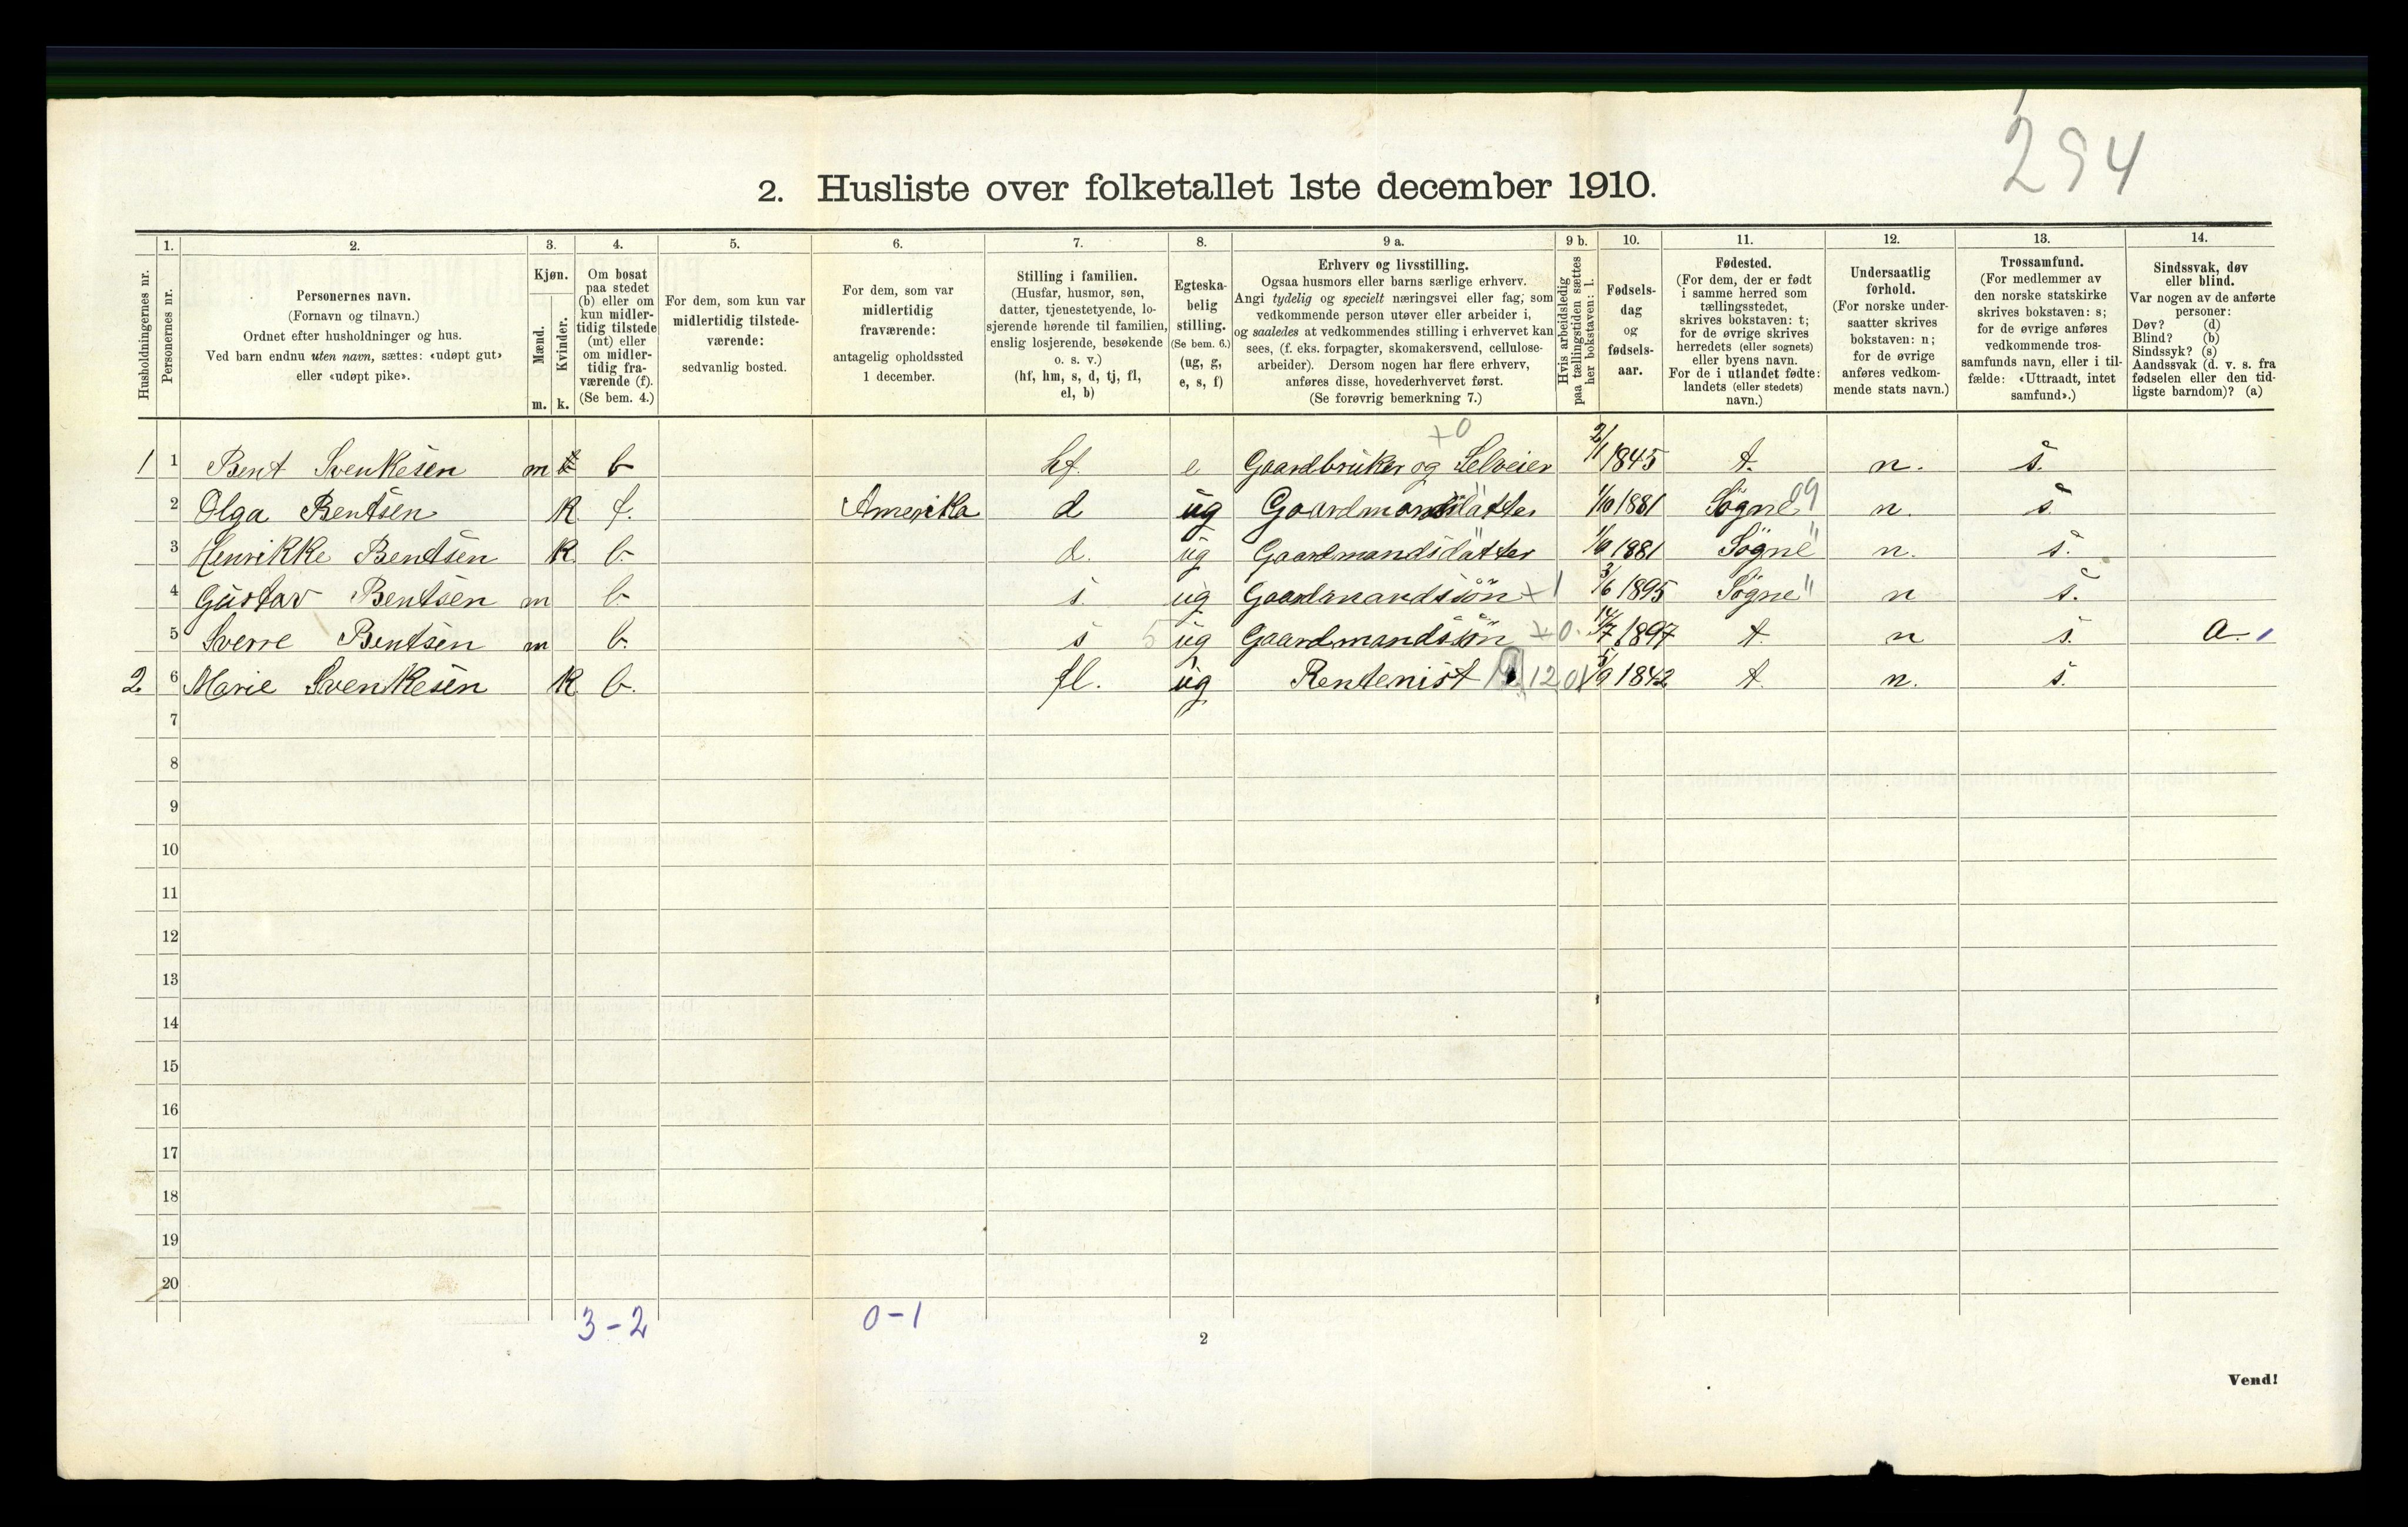 294
2. Husliste over folketallet 1ste december 1910.
1. 2. 3. 4. 5. 6. 7. 8. 9 a. 9 b. 10. 11. 12. 13. 14.
Husholdningernes nr.
Personernes nr.
Personernes navn.
(Fornavn og tilnavn.)
Ordnet efter husholdninger og hus.
Ved barn endnu uten navn, sættes: «udøpt gut»
eller «udøpt pike».
Kjøn.
Mænd.
Kvinder.
m. k.
Om bosat
paa stedet
(b) eller om
kun midler-
tidig tilstede
(mt) eller
om midler-
tidig fra-
værende (f).
(Se bem. 4.)
For dem, som kun var
midlertidig tilstede-
værende:
sedvanlig bosted.
For dem, som var
midlertidig
fraværende:
antagelig opholdssted
1 december.
Stilling i familien.
(Husfar, husmor, søn,
datter, tjenestetyende, lo-
sjerende hørende til familien,
enslig losjerende, besøkende
o. s. v.)
(hf, hm, s, d, tj, fl,
el, b)
Egteska-
belig
stilling.
(Se bem. 6.)
(ug, g,
e, s, f)
Erhverv og livsstilling.
Ogsaa husmors eller barns særlige erhverv.
Angi tydelig og specielt næringsvei eller fag, som
vedkommende person utøver eller arbeider i,
og saaledes at vedkommendes stilling i erhvervet kan
sees, (f. eks. forpagter, skomakersvend, cellulose-
arbeider). Dersom nogen har flere erhverv,
anføres disse, hovederhvervet først.
(Se forøvrig bemerkning 7.)
Hvis arbeidsledig
paa tællingstiden sættes
her bokstaven: l.
Fødsels-
dag
og
fødsels-
aar.
Fødested.
(For dem, der er født
i samme herred som
tællingsstedet,
skrives bokstaven: t;
for de øvrige skrives
herredets (eller sognets)
eller byens navn.
For de i utlandet fødte:
landets (eller stedets)
navn.)
Undersaatlig
forhold.
(For norske under-
saatter skrives
bokstaven: n;
for de øvrige
anføres vedkom-
mende stats navn.)
Trossamfund.
(For medlemmer av
den norske statskirke
skrives bokstaven: s;
for de øvrige anføres
vedkommende tros-
samfunds navn, eller i til-
fælde: «Uttraadt, intet
samfund».)
Sindssvak, døv
eller blind.
Var nogen av de anførte
personer:
Døv? (d)
Blind? (b)
Sindssyk? (s)
Aandssvak (d. v. s. fra
fødselen eller den tid-
ligste barndom)? (a)
+0
1 1 Bent Svenkesen m b hf. e Gaardbruker og Selveier 2/1 1845 t. n. s.
2 Olga Bentsen k f. Amerika d ug Gaardmandsdatter 1/10 1881 Søgne 09 n. s.
3 Henrikke Bentsen k b. d. ug Gaardmandsdatter 1881 Søgne " n. s.
4 Gustav Bentsen m b. s. ug Gaardmandssøn +1 3/6 1895 Søgne " n s.
5 Sverre Bentsen m b. s 5 ug Gaardmandssøn +0. 1897 t. n s. a. 1
2 6 Marie Svenkesen k b. fl. ug Rentenist 1201 1842 t. n. s.
7
8
9
10
11
12
13
14
15
16
17
18
19
20
3-2 0-1
2
Vend!